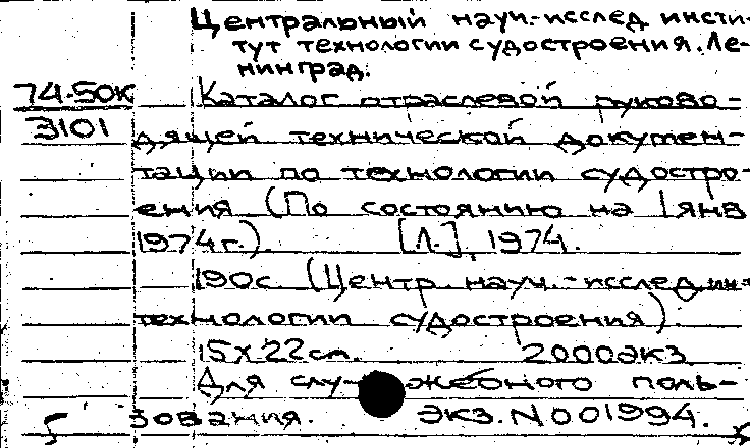 Центральный науч.-исслед инсти-
тут технологии судостроения. Ле-
нинград.
74-50к Каталог отраслевой руково-
3101 дящей технической докумен-
тации по технологии судостро-
ения (По состоянию на 1 янв
1974г.). [Л.], 1974.
190с (Центр. науч.-исслед.ин-т
технологии судостроения).
15х22см. 2000экз
Для служебного поль-
зования. экз. N001994.